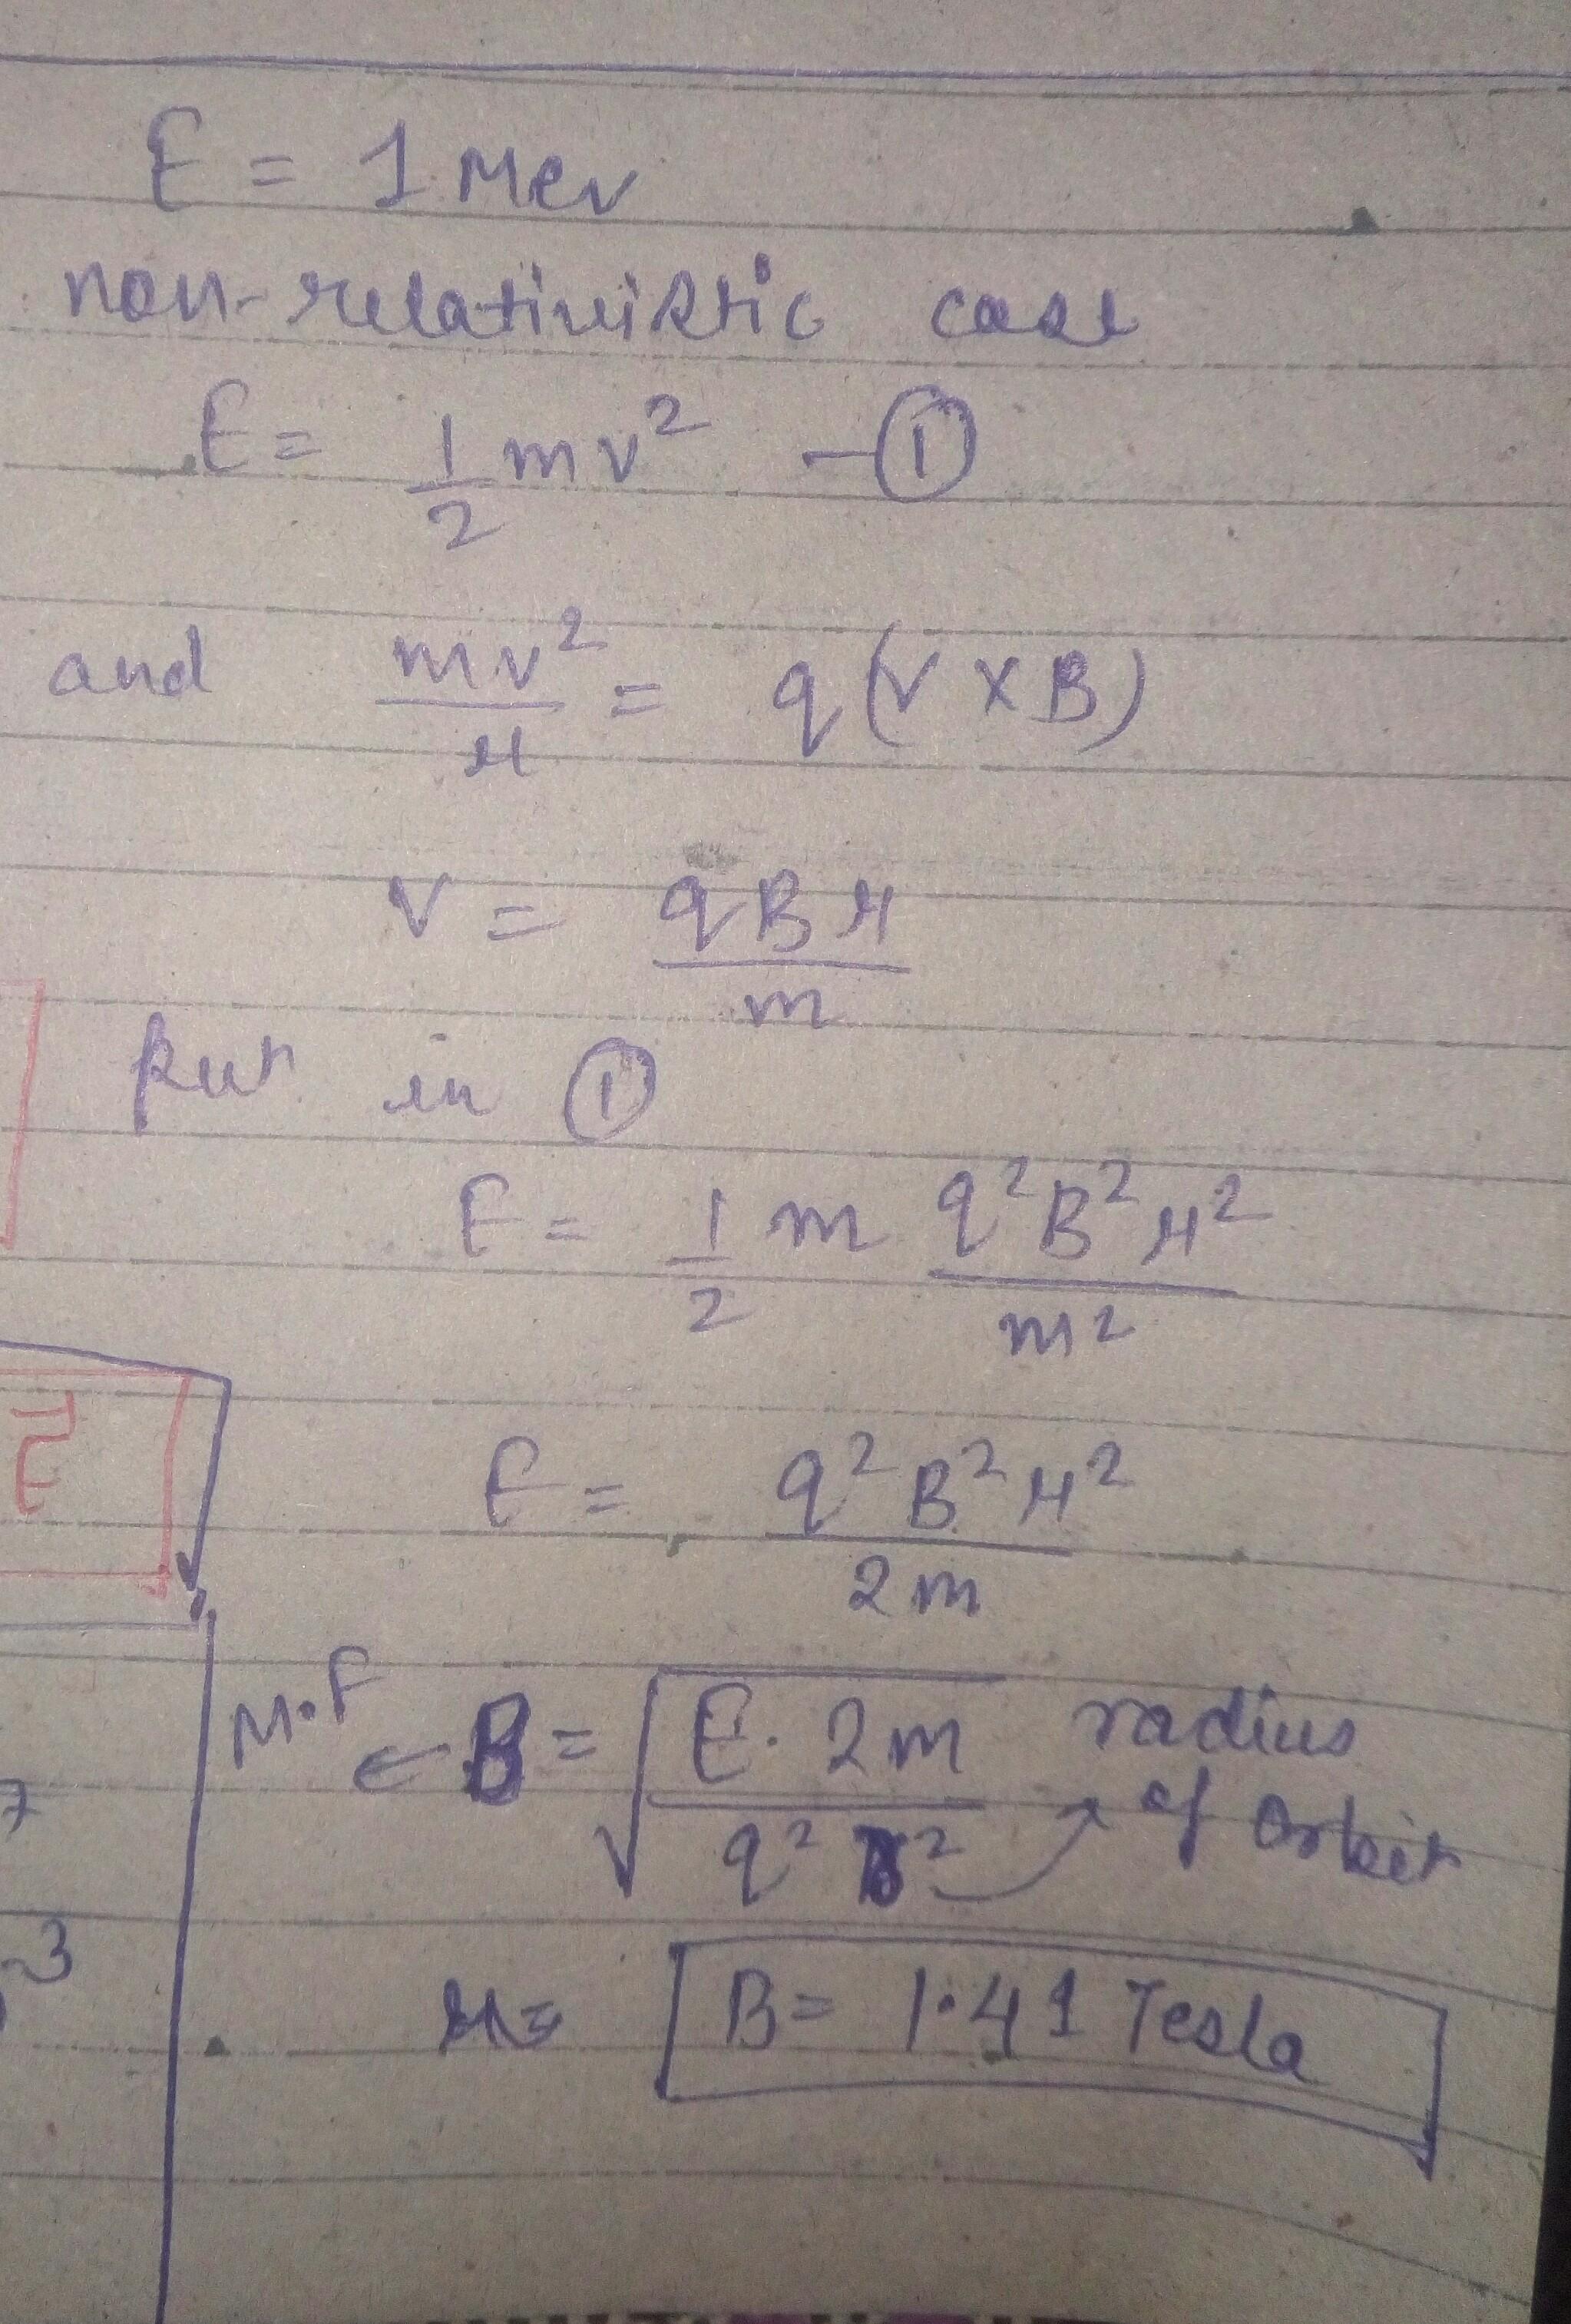 E = 1 Mev
non-relativistic case
E = 1/2 mv² — ①
and mv²/r = q(v × B)
v = qBr/m
put in ①
E = 1/2 m q²B²r²/m²
E = q²B²r²/2m
M.F ← B = √(E. 2m / q² r²) → radius of orbit
B = 1.41 Tesla